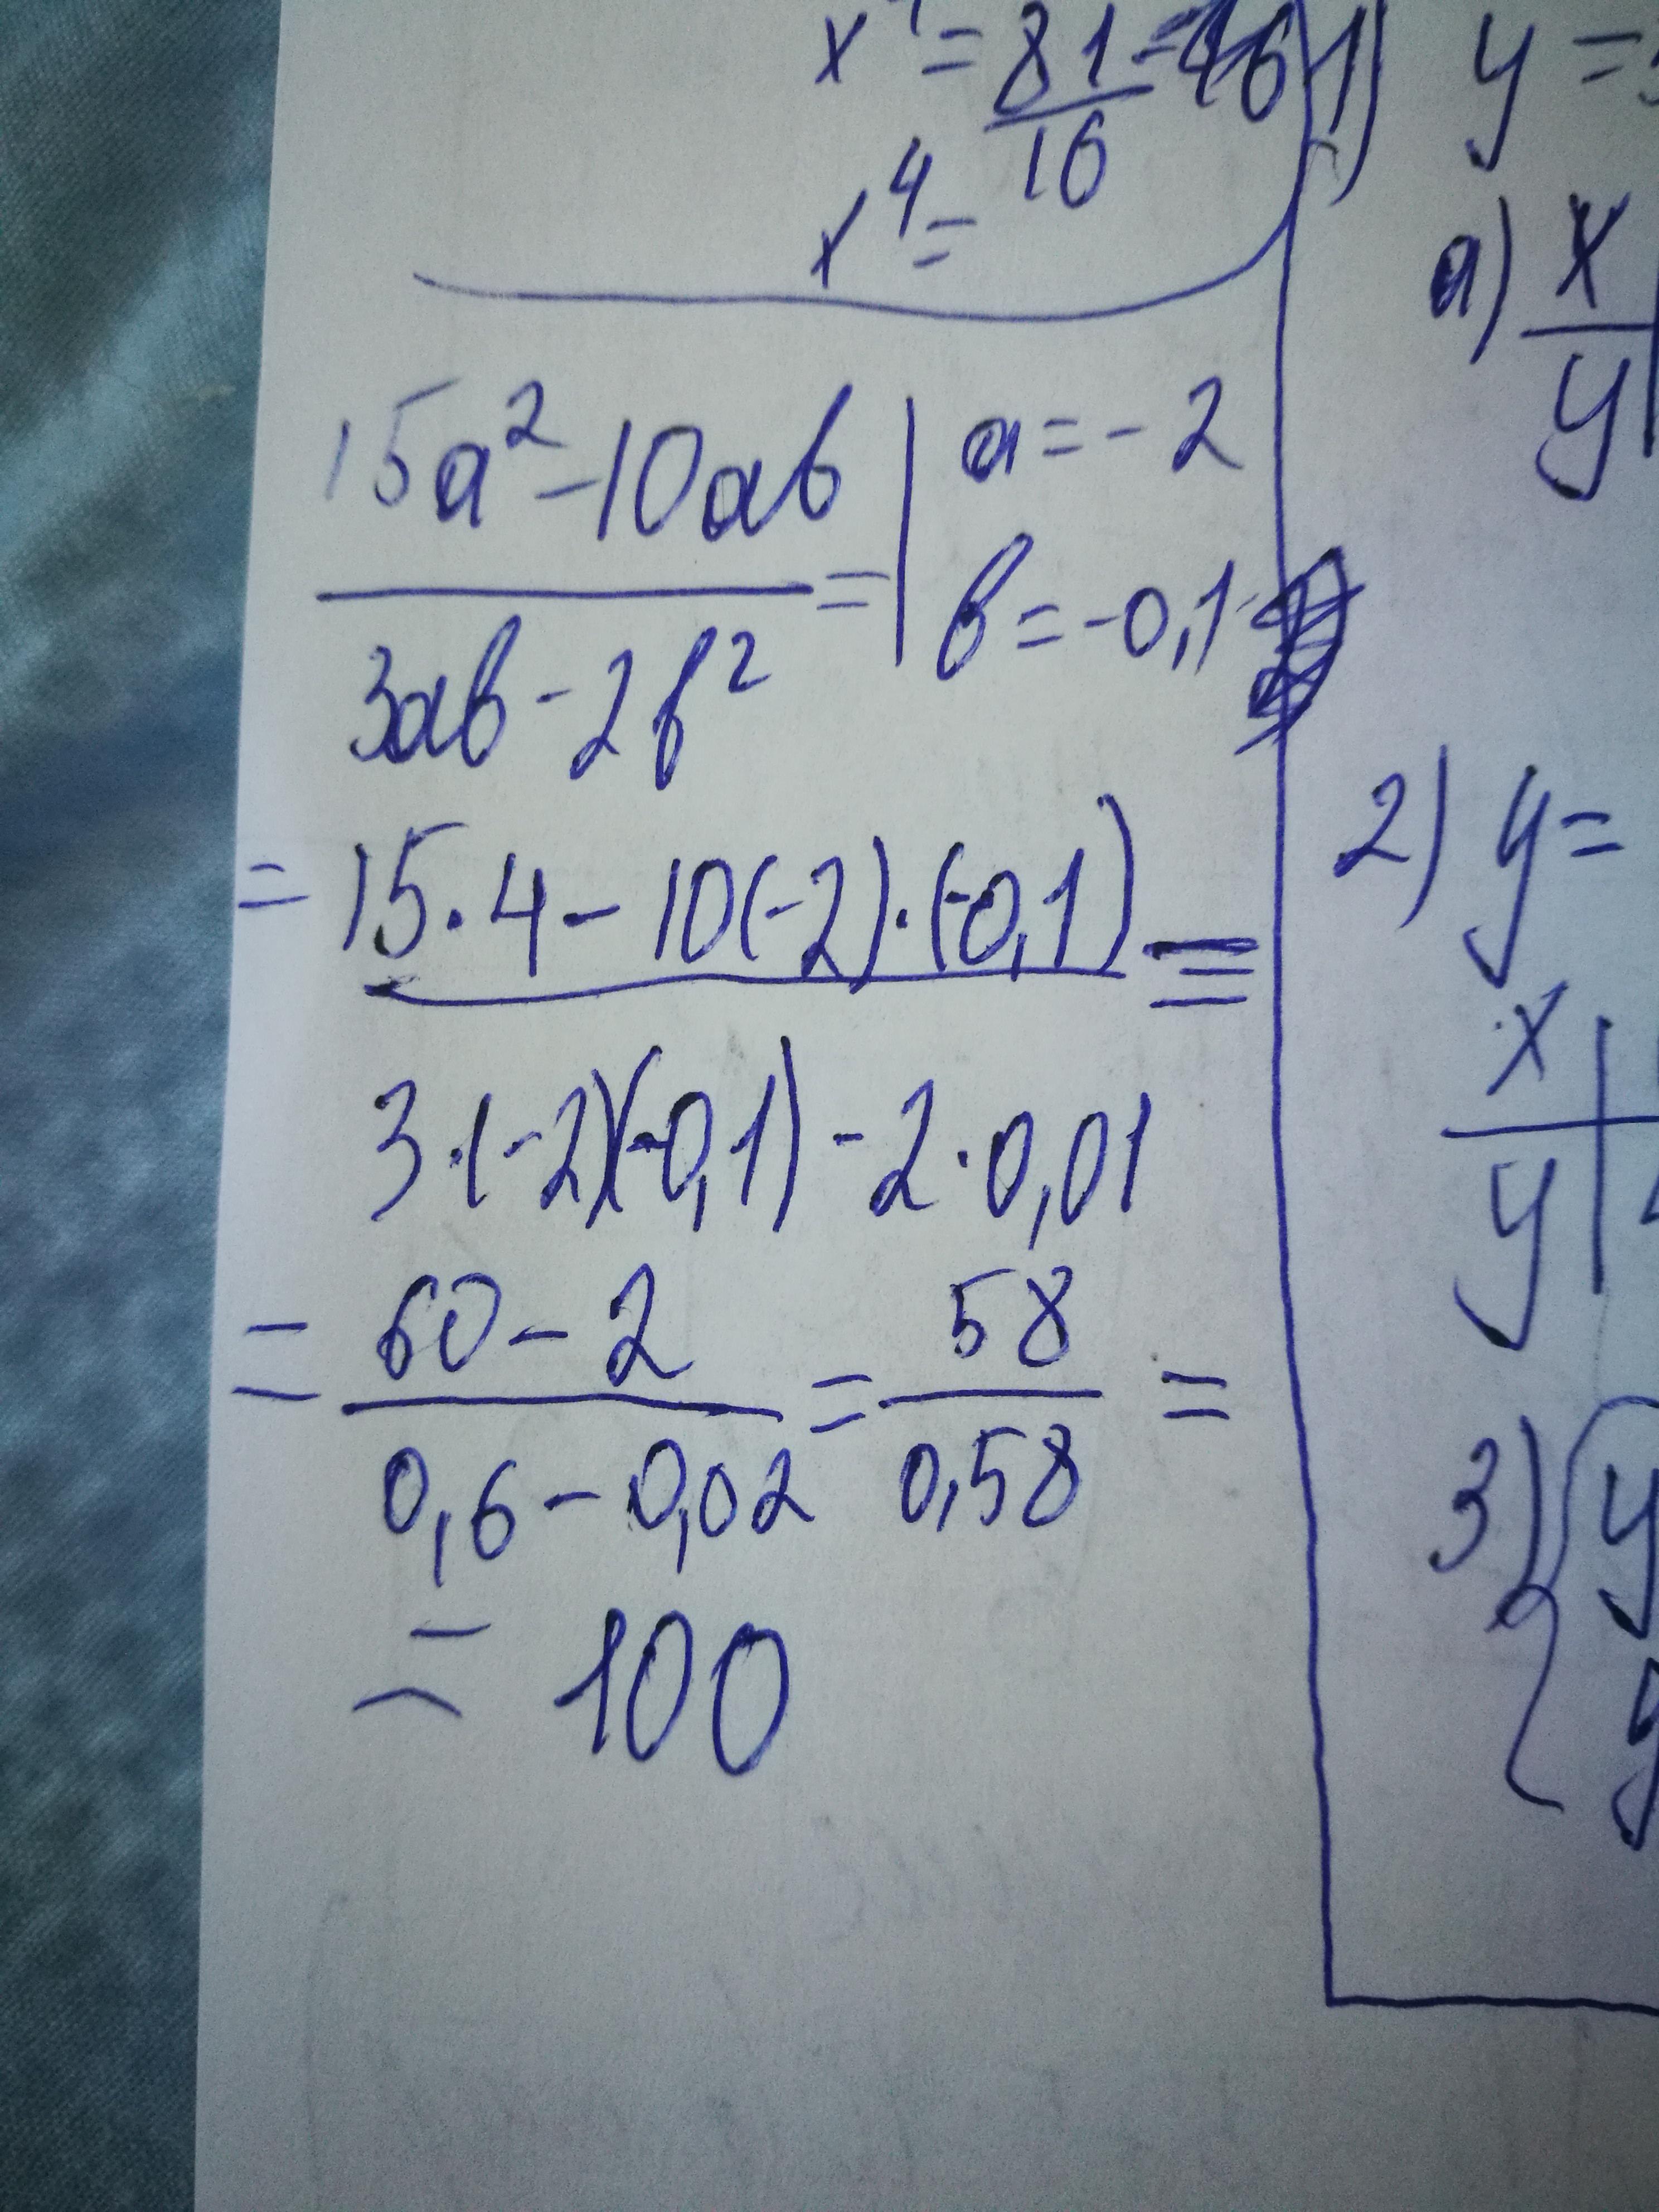 x⁴ = 81/16 =
x⁴ =
(15a² - 10ab)/(3ab - 2b²) = | a = -2
b = -0,1
= (15 · 4 - 10(-2) · (-0,1))/(3 · (-2)(-0,1) - 2 · 0,01) =
= (60 - 2)/(0,6 - 0,02) = 58/0,58 =
= 100
1) y =
a) x
y
2) y =
x
y
3) { y
y